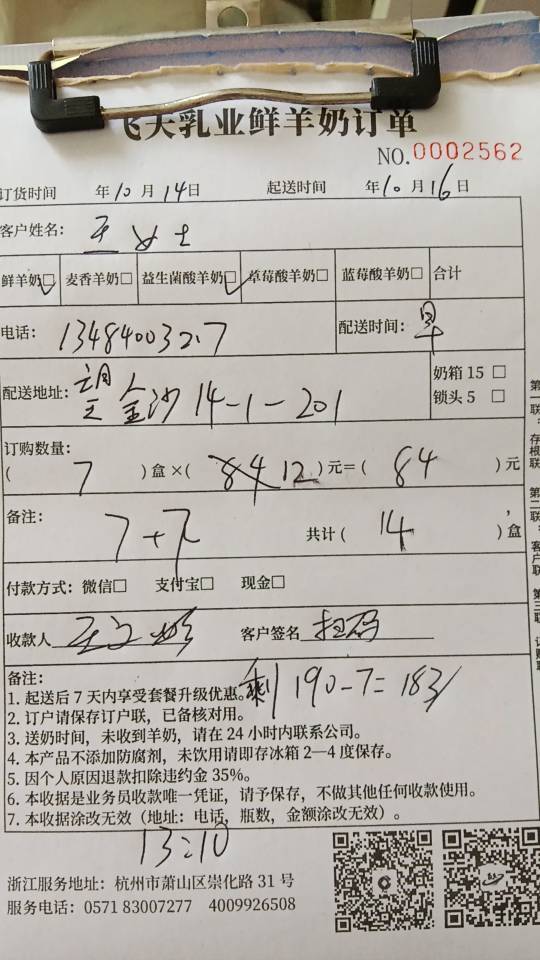 飞天乳业鲜羊奶订单
NO.0002562
订货时间 年10月14日 起送时间 年10月16日
客户姓名： 王女士
鲜羊奶☑ 麦香羊奶□ 益生菌酸羊奶☑ 草莓酸羊奶□ 蓝莓酸羊奶□ 合计
电话： 配送时间：早
配送地址：望金沙14-1-201
奶箱15 □
锁头5 □
订购数量：
( 7 )盒×( 84 12 )元=( 84 )元
备注： 7+7 共计( 14 )盒
付款方式：微信□ 支付宝□ 现金□
收款人 客户签名 扫码
备注： 剩190-7=183
1. 起送后7天内享受套餐升级优惠。
2. 订户请保存订户联，已备核对用。
3. 送奶时间，未收到羊奶，请在24小时内联系公司。
4. 本产品不添加防腐剂，未饮用请即存冰箱2—4度保存。
5. 因个人原因退款扣除违约金35%。
6. 本收据是业务员收款唯一凭证，请予保存，不做其他任何收款使用。
7. 本收据涂改无效（地址：电话，瓶数，金额涂改无效）。
13:10
浙江服务地址：杭州市萧山区崇化路31号
服务电话：0571 83007277 4009926508
第一联：存根联
第二联：客户联